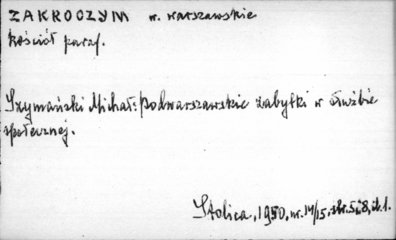 ZAKROCZYM w. warszawskie
Kościół paraf.
Szymański Michał: Podwarszawskie zabytki w służbie
społecznej.
Stolica, 1950, nr. 14/15, str. 5 i 8, il. 1.